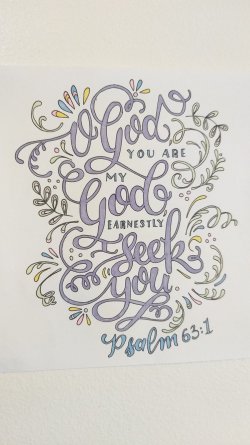 O God
YOU ARE
MY
God,
EARNESTLY
I seek
you
Psalm 63:1